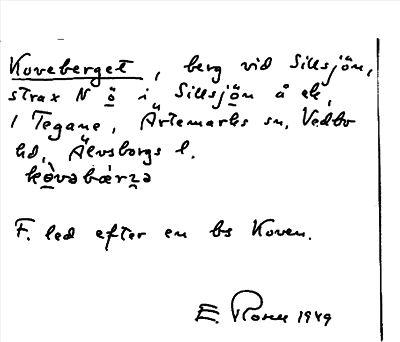 Koveberget, berg vid Sillsjön,
strax N ö i Sillsjön å ek.
1 Tegane, Ärtemarks sn, Vedbo
hd, Älvsborgs l.
F. led efter en bs Koven.
E. Rosell 1949